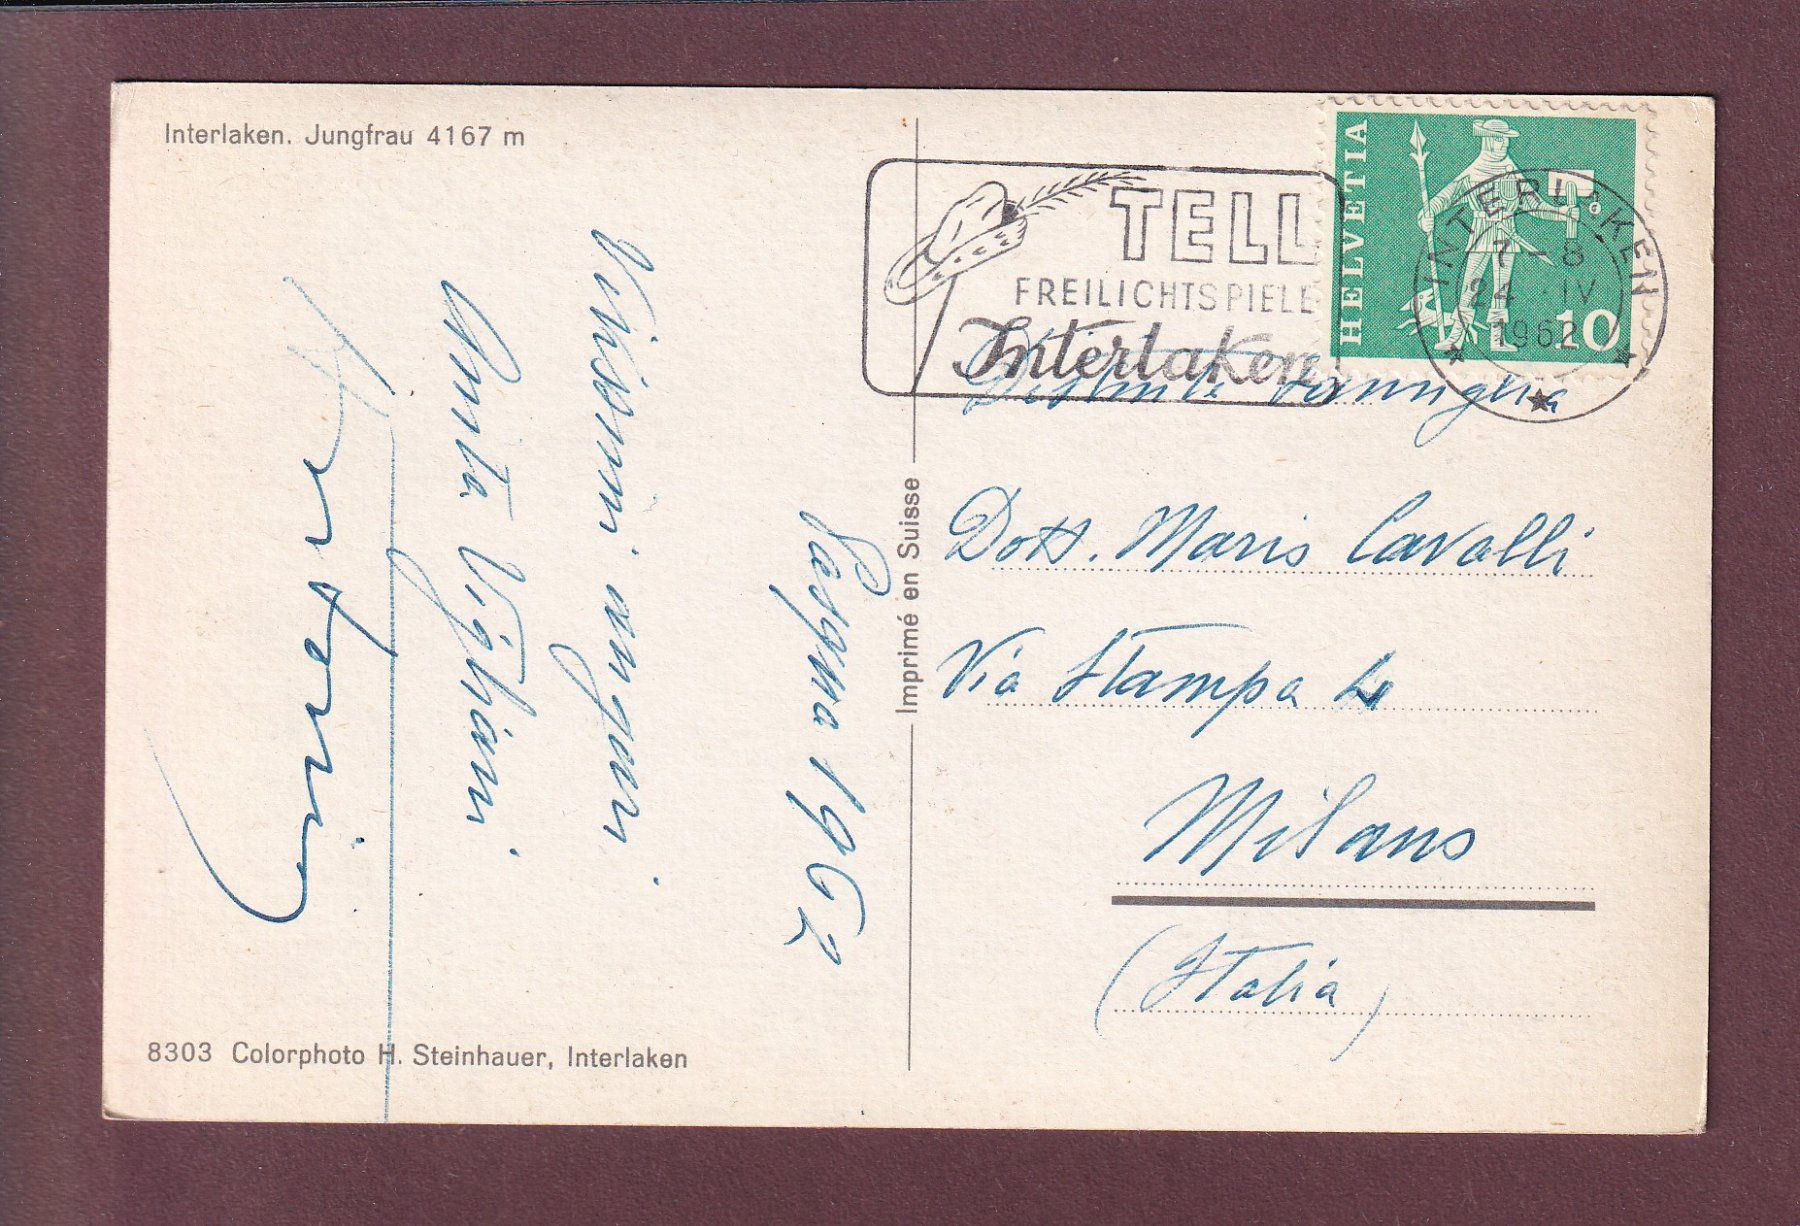 Interlaken. Jungfrau 4167 m
Pasqua 1962
Vivissimi auguri
Anita Vighani
8303 Colorphoto H. Steinhauer, Interlaken
Imprimé en Suisse
TELL
FREILICHTSPIELE
Interlaken
HELVETIA
10
INTERLAKEN
7-8
24.IV
1962
famiglia
Dott. Mario Cavalli
Via Stampa 4
Milano
(Italia)